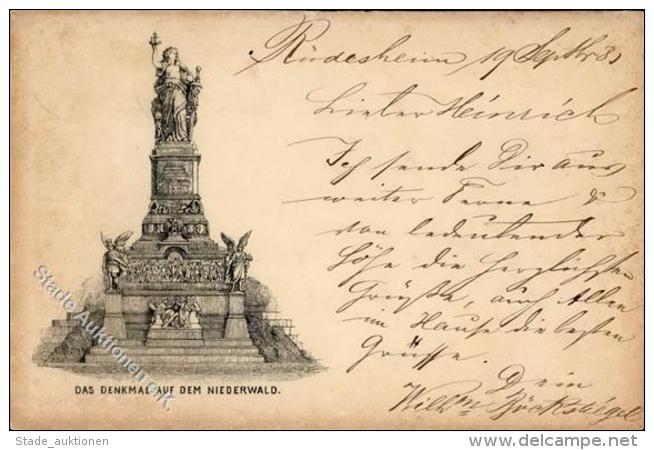 Rüdesheim 19 Septbr 83
Lieber Heinrich
Ich sende Dir aus
weiter Ferne &
von bedeutender
Höhe die herzlichsten
Grüsse, auch Allen
im Hause die besten
Grüsse.
Dein
Wilhm Böckstiegel
DAS DENKMAL AUF DEM NIEDERWALD.
Stade Auktionen e.K.
Stade_auktionen
www.delcampe.net